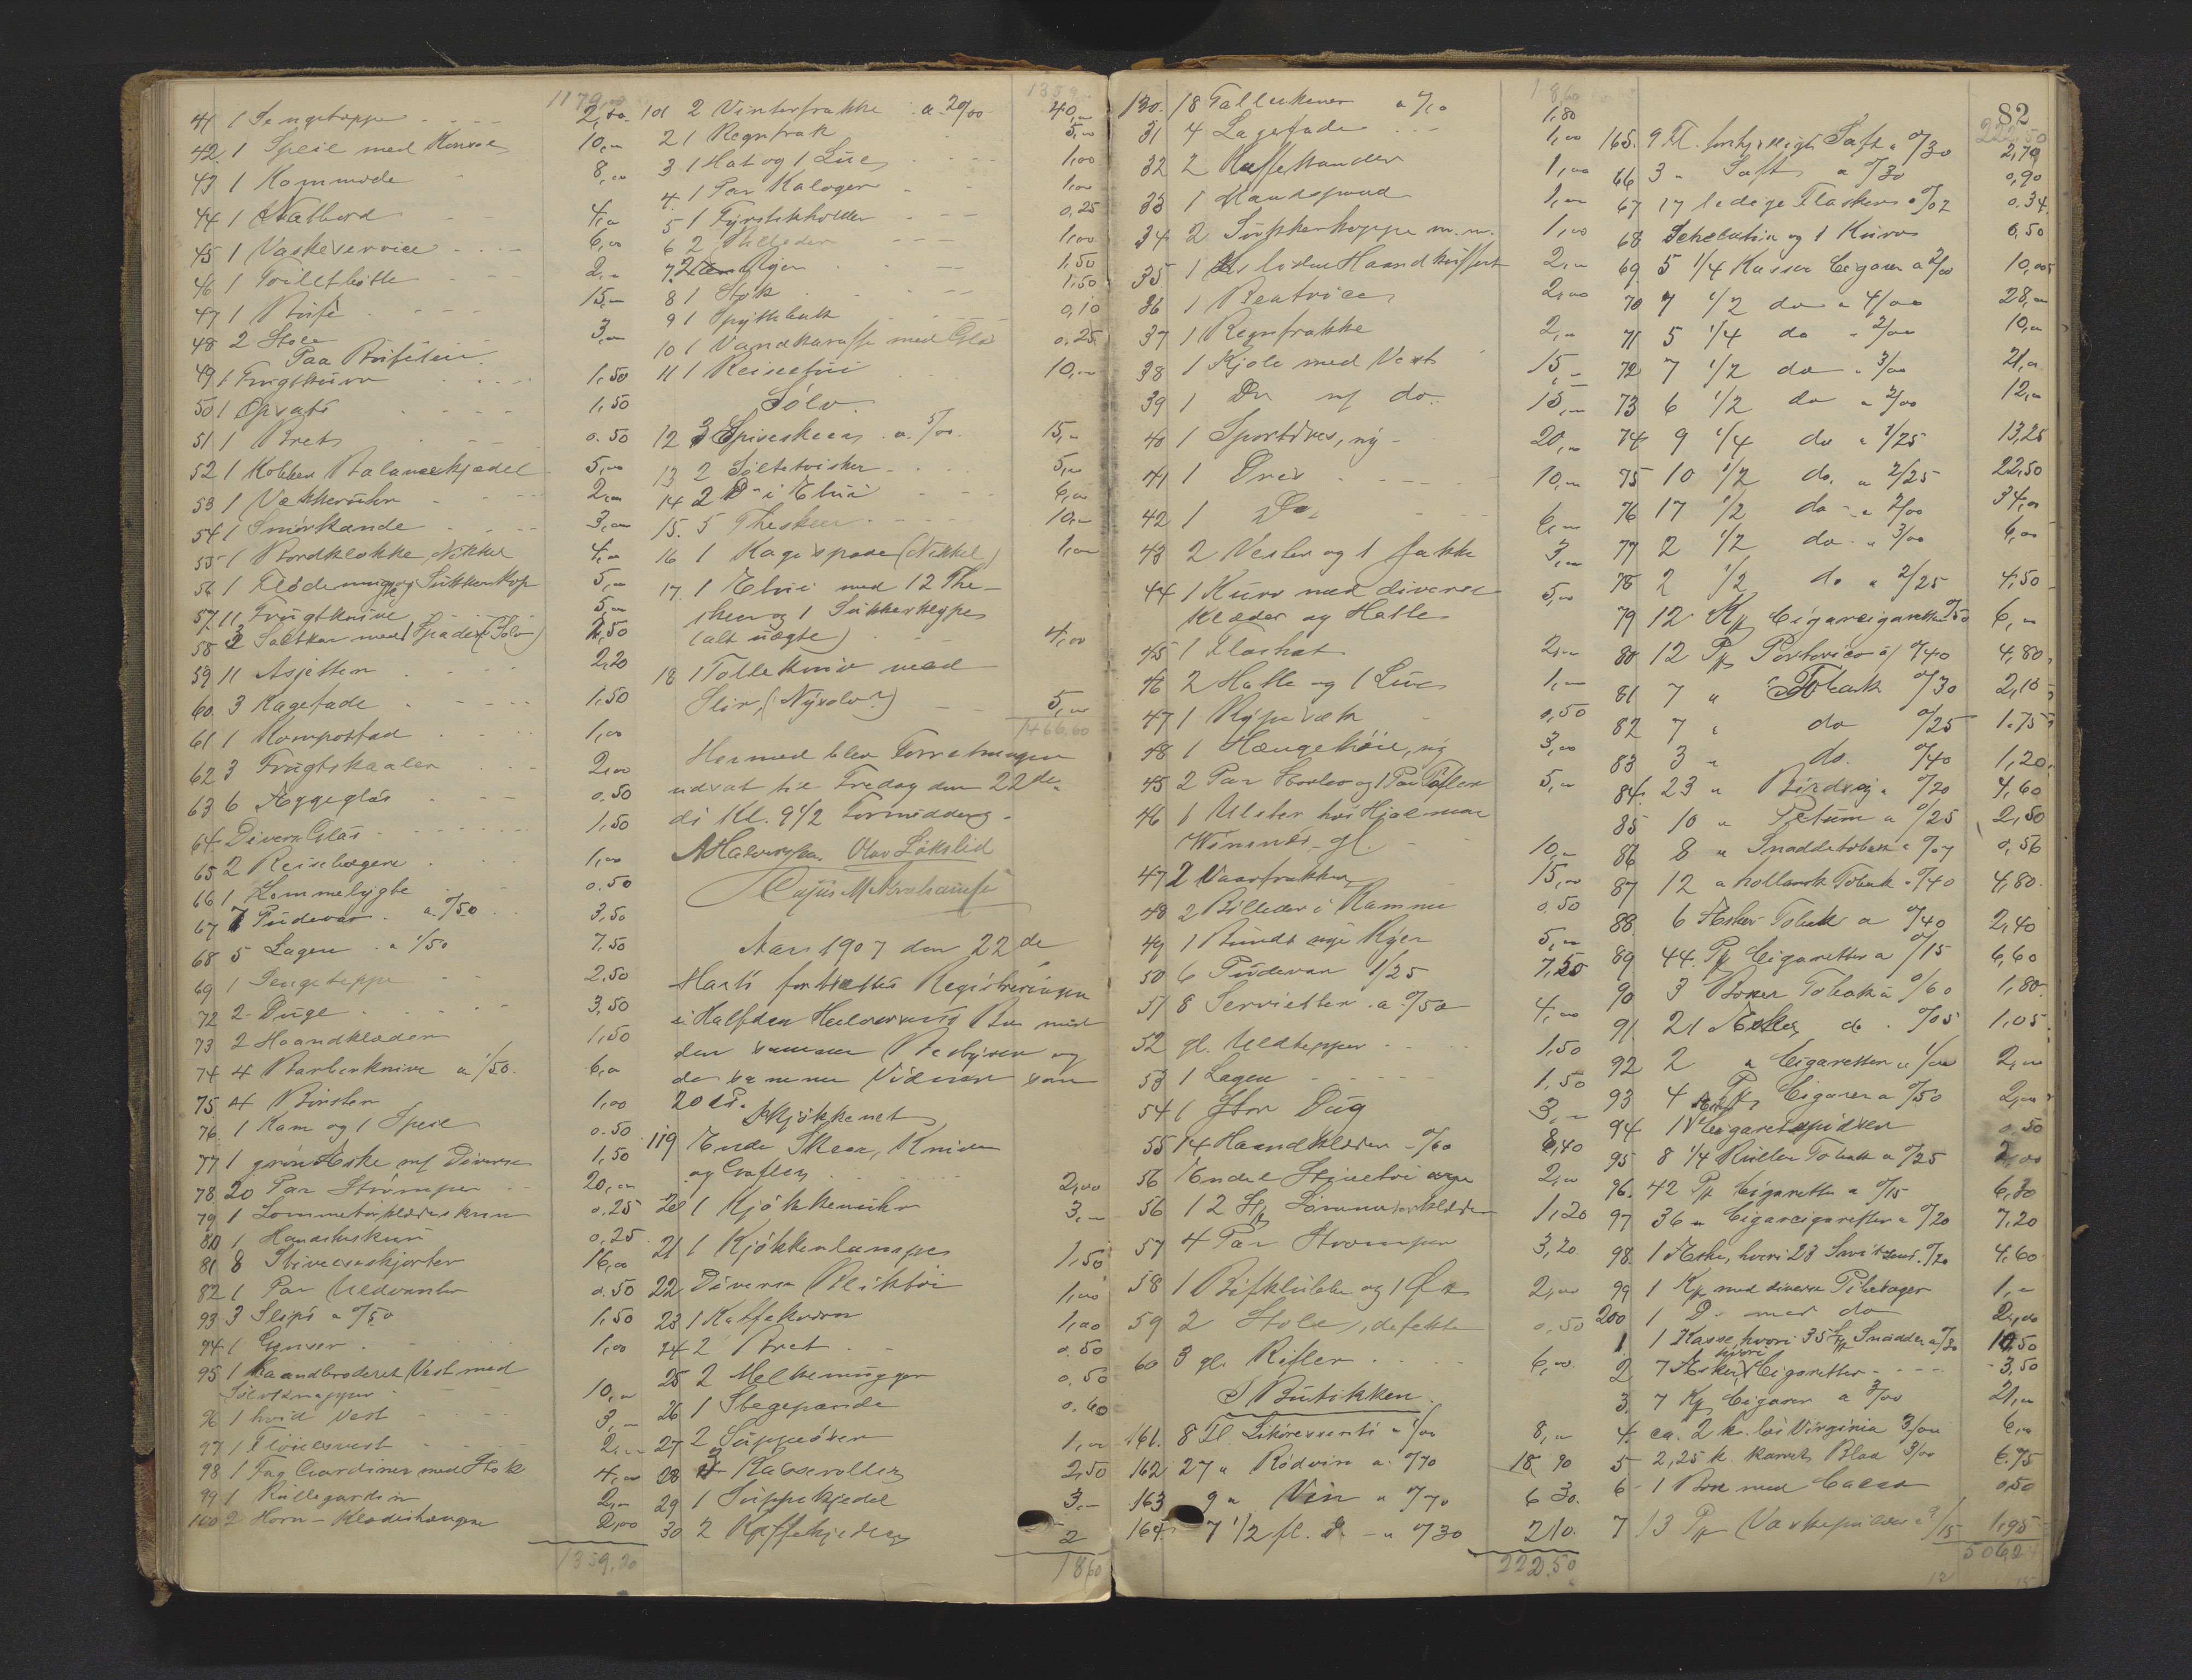 1179,00
41 1 Sengetæppe 2,50
42. 1 Speil med Konsol 10,00
43 1 Kommode 8,00
44 1 Natbord 4,00
45 1 Vaskeservice 6,00
46 1 Toiletbötte 2,00
47 1 Büfé 15,00
48 2 Stole 3,00
Paa Büfeten
49 1 Frugtkürv 1,50
50 1 Opsats 1,50
51 1 Bret 0.50
52 1 Kobber Balancekjædel 5,00
53 1 Vækkeruhr 2,00
54 1 Smörkande 3,00
55 1 Bordklokke, Nikkel 4,00
56 1 Flödemugge og Sukkerkop 5,00
57 11 Frugtknive 5,00
58 2 Saltkar med Spader (Sölv) 2,50
59 11 Asjetter 2,20
60. 3 Kagefade 1,50
61 1 Kompotfad 1,00
62 3 Frugtskaaler 2,00
63 6 Æggeglas 0.50
64 Diverse Glas 1,50
65 2 Reisebægere 1,00
66 1 Lommelygte 0.50
67 7 Püdevar a 0/50 3,50
68 5 Lagen a 1/50 7,50
69 1 Sengeteppe 2,50
72 2 Duge 3,50
73 2 Haandklæder 1,50
74 4 Barberknive a 1/50. 6,00
75 4 Börster 1,00
76. 1 Kam og 1 Speil 0.50
77 1 grön Æske m/ Diverse 1,50
78 20 Par Strömper 20,00
79 1 Lommetorklæde 0.25
80 1 0.25
81 8 Stiveskjorter 16,00
82 1 Par Uldvanter 0.50
93 3 Slips a 0/50 1,50
94 1 Genser 1,00
95 1 haandbroderet Vest med
Sölvknapper 10,00
96 1 hvid Vest 3,00
97 1 Flöielsvest 2,00
98 1 Fag Gardiner med Stok 4,00
99 1 Rüllegardin 2,00
100 2 Horn-Klædeshængere 2,00
1359,20
1359
101 2 Vinterfrakke a 20/00 40,00
2 1 Regnfrak 5,00
3 1 Hat og 1 Lue 1,00
4. 1 Par Kaloger 1,00
5 1 Fyrstikholder 0,25
6 2 Billeder 1,00
7. 2 1,50
8 1 Stok 1,50
9 1 Spyttebak 0,10
10 1 Vandkaraffe med Glas 0.25
11 1 Reiseetui 10,00
Sölv.
12 3 Spiseskeer a. 5/00. 15,00
13 2 Syltetöisker 5,00
14 2 Do i Etui 6,00
15. 5 Theskeer 10,00
16 1 Kagespade (Nikkel) 1,00
17. 1 Etui med 12 The-
skeer og 1 Sukkerklype
(alt uægte) 4,00
18 1 Tollekniv med
Slir, (Nysolv?) 5,00
1466,60
Hermed blev Forretningen
udsat til Fredag den 22de
ds Kl. 9 1/2 Formiddag.
A Halvorsen. Olav Lökslid
Cajus M Abrahamsen
Aar 1907 den 22de
Marts fortsattes Registreringen
i Halfdan Halvorsens Bo med
den samme Bestyrer og
de samme Vidner som
20 ds.
Kjökkenet
119 Endel Skeer, Kniver
og Gafler 2,00
20 1 Kjökkenuhr 3,00
21 1 Kjökkenlampe 1,50
22 Diverse Bliktöi 1,00
23 1 Kaffekvern 1,00
24 2 Bret 0.50
25 2 Melkemugger 0.50
26 1 Stegepande 0.60
27 2 Suppeöser 1,00
28 3 Kasseroller 2,50
29 1 Suppekjedel 3,00
30 2 Kaffekjedler 2
1860
1860
130. 18 Tallerkener a 0/10 1,80
31 4 Lagefade 1,00
32 2 Kaffekander 1,00
33 1 Mandspand 1,00
34 2 Sukkerkoppe m.m. 1,00
35 1 Haandkuffert 2,00
36 1 Beatrice 2,00
37 1 Regnfrakke 2,00
38 1 Kjole med Vest 15,00
39 1 Do m/ do. 15,00
40 1 Sportdres, ny 20,00
41 1 Dres 10,00
42 1 Do 6,00
43 2 Vester og 1 Jakke 3,00
44 1 Kurv med diverse
Klæder og Hatte 5,00
45 1 Floshat 2,00
46 2 Hatte og 1 Lue 1,00
47 1 0,50
48 1 Hængeköie, ny 3,00
45 2 Par Stövler og 1 Par Töfler 5,00
46 1 Ulster hos Hjalmar
Wimnes, gl. 10,00
47 2 Vaarfrakker 15,00
48 2 Billeder i Ramme 0.50
49 1 Bundt nye 5,00
50 6 Püdevar 1/25 7,50
51 8 Servietter a 0/50 4,00
52 gl. Uldtepper 1,50
53 1 Lagen 1,50
54 1 Stor Dug 3,00
55 14 Haandklæder 0/60 8,40
56 Endel Stintöi 2,00
56 12 St Lommetorklæder 1,20
57 4 Par Strömper 3,20
58 1 Bifklubbe og 1 Öks 2,00
59 2 Stole, defekte 0.50
60 3 gl. Rifler 6,00
I Butikken
161. 8 Fl. Liköressents a 1/00 8,00
162 27 " Rödvin a 0/70 18,90
163 9 " Vin a 0/70 6 30.
164 7 1/2 fl. D - a 0/30 2 10.
222.50
82
222,50
165. 9 Fl. forskjellig Saft a 0/30 2,70
66 3 " Saft a 0/30 0,90
67 17 ledige Flasker a 0/02 0.34
68 og 1 Kurv 0,50
69. 5 1/4 Kasser Cigarer a 2/00 10,00
70 7 1/2 do a 4/00 28,00
71 5 1/4 do " 2/00 10,00
72 7 1/2 do " 3/00 21,00
73 6 1/2 do a 2/00 12,00
74 9 1/4 do a 1/25 13,25
75 10 1/2 do. a 2/25 22,50
76 17 1/2 do a 2/00 34,00
77 2 1/2 do a 3/00 6,00
78 2 1/2 do a 2/25 4,50
79 12 Kp Cigarcigaretter 0/50 6,00
80 12 Pk Portorico a 0/40 4,80
81 7 " Tobak 0/30 2,10
82 7 " do 0/25 1.75
83 3 " do. 0/40 1,20
84 23 " Birdseye 0/20 4,60
85 10 " Petum a 0/25 2,50
86 8 " Snaddetobak a 0/07 0,56
87 12 " hollansk Tobak 0/40 4,80
88. 6 Æsker Tobak a 0/40 2,40
89 44 Pk Cigaretter a 0/15 6,60
90 3 Boxer Tobak a 0/60 1,80
91. 21 Æsker do. 0/05 1,05
92 2 " Cigaretter a 1/00 2,00
93 4 Pk Cigarer a 0/50 2,00
94 1 Æske Cigaretspidser 0.50
95 8 1/4 Ruller Tobak a 0/25 2,00
96. 42 Pk Cigaretter a 0/15 6,30
97 36 " Cigarcigaretter a 0/20 7,20
98. 1 Æske, hvori 23 0/20 4,60
99 1 Kp med diverse Pibetöger 1,00
200 1 D. med do 2,00
1 1 Kasse, hvori 35 St Snadder a 0/30 10,50
2 7 Æsker, hvori Cigaretter 3,50
3. 7 Kp Cigarer a 3/00 21,00
4. ca. 2 k. lös Virginia 3/00 6,00
5 2,25 k. karvet Blad 3/00 6.75
6 1 Box med Cacao 0,50
7 13 Pk Vaskepulver a 0/15 1,95
506,24